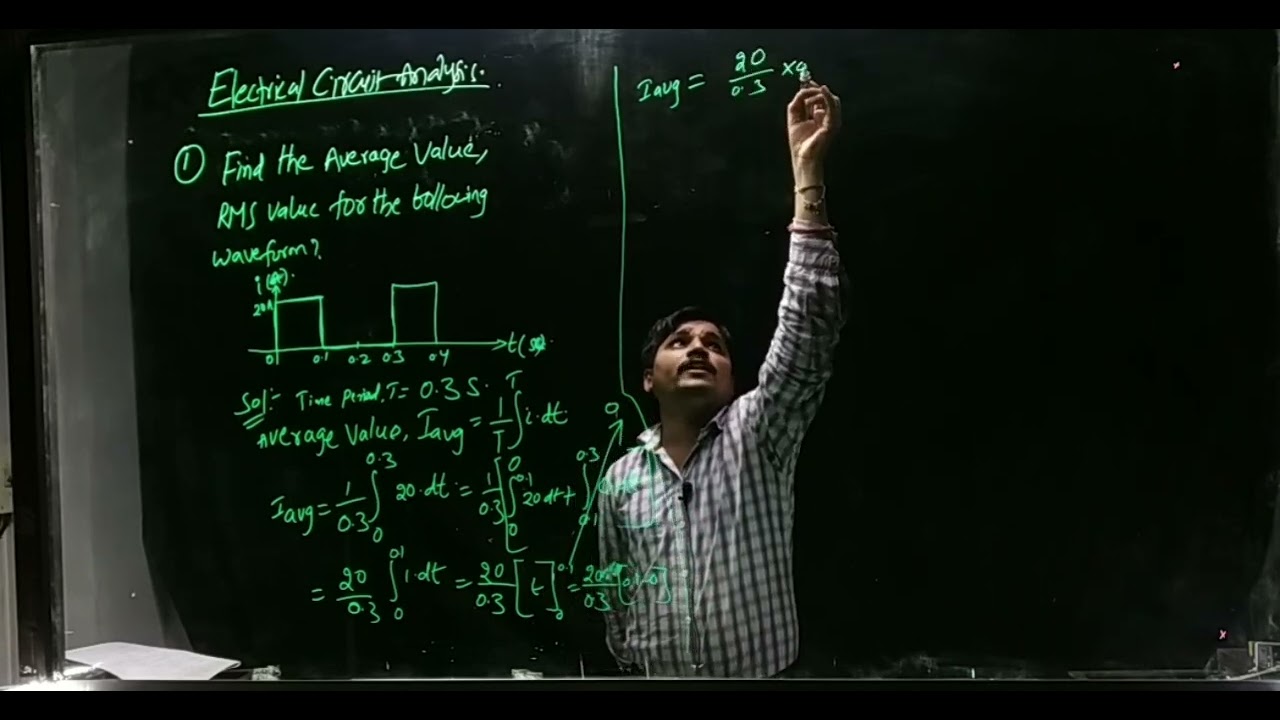 Electrical Circuit Analysis.
① Find the Average Value,
RMS value for the bollowing
waveform?
20A
0 0.1 0.2 0.3 0.4 t(s).
Sol:- Time Period, T = 0.3 S.
Average Value, Iavg = 1/T ∫₀ᵀ i.dt.
Iavg = 1/0.3 ∫₀^0.3 20.dt = 1/0.3 [ ∫₀^0.1 20 dt + ∫_0.1^0.3
0
= 20/0.3 ∫₀^0.1 1.dt = 20/0.3 [t]₀^0.1 = 20/0.3 [0.1-0]
Iavg = 20/0.3 ×